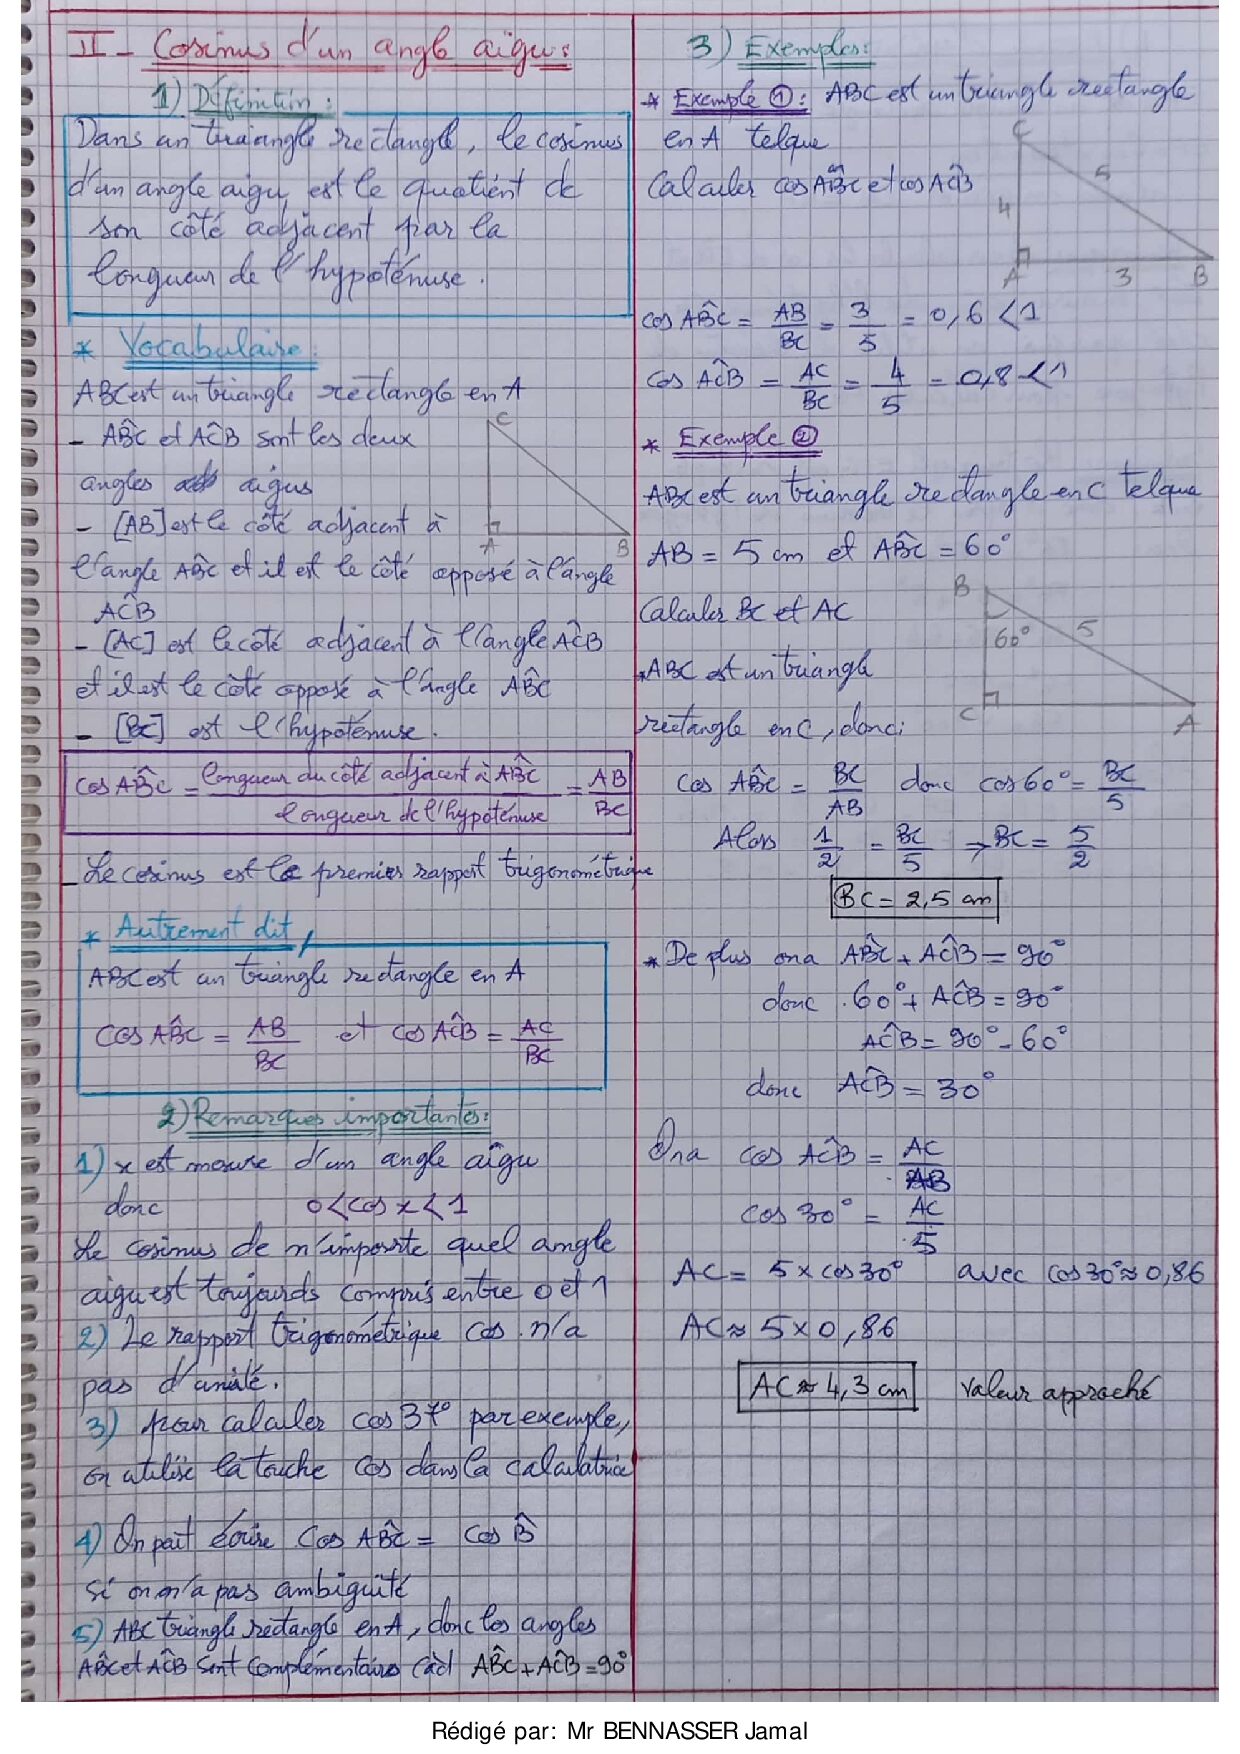 II - Cosinus d'un angle aigu:
1) Définition:
Dans un triangle rectangle, le cosinus
d'un angle aigu est le quotient de
son côté adjacent par la
longueur de l'hypoténuse.
* Vocabulaire:
ABC est un triangle rectangle en A
- AB̂C et AĈB sont les deux
angles aigus
- [AB] est le côté adjacent à
l'angle AB̂C et il est le côté opposé à l'angle
AĈB
- [AC] est le côté adjacent à l'angle AĈB
et il est le côté opposé à l'angle AB̂C
- [BC] est l'hypoténuse.
C
A
B
cos AB̂C = longueur du côté adjacent à AB̂C / longueur de l'hypoténuse = AB / BC
- Le cosinus est le premier rapport trigonométrique
* Autrement dit,
ABC est un triangle rectangle en A
cos AB̂C = AB / BC et cos AĈB = AC / BC
2) Remarques importantes:
1) x est mesure d'un angle aigu
donc 0 < cos x < 1
Le cosinus de n'importe quel angle
aigu est toujourds compris entre 0 et 1
2) Le rapport trigonométrique cos n'a
pas d'unité.
3) pour calculer cos 37° par exemple,
on utilise la touche cos dans la calculatrice
4) On peit écrire cos AB̂C = cos B̂
si on n'a pas ambiguité
5) ABC triangle rectangle en A, donc les angles
AB̂C et AĈB sont complémentaires càd AB̂C + AĈB = 90°
3) Exemples:
* Exemple ①: ABC est un triangle rectangle
en A telque
Calculer cos AB̂C et cos AĈB
C
5
4
A
3
B
cos AB̂C = AB / BC = 3 / 5 = 0,6 < 1
cos AĈB = AC / BC = 4 / 5 = 0,8 < 1
* Exemple ②
ABC est un triangle rectangle en C telque
AB = 5 cm et AB̂C = 60°
Calculer BC et AC
B
60°
5
C
A
* ABC est un triangle
rectangle en C, donc:
cos AB̂C = BC / AB donc cos 60° = BC / 5
Alors 1 / 2 = BC / 5 ⇒ BC = 5 / 2
BC = 2,5 cm
* De plus on a AB̂C + AĈB = 90°
donc 60° + AĈB = 90°
AĈB = 90° - 60°
donc AĈB = 30°
On a cos AĈB = AC / AB
cos 30° = AC / 5
AC = 5 × cos 30° avec cos 30° ≈ 0,86
AC ≈ 5 × 0,86
AC ≈ 4,3 cm valeur approché
Rédigé par: Mr BENNASSER Jamal